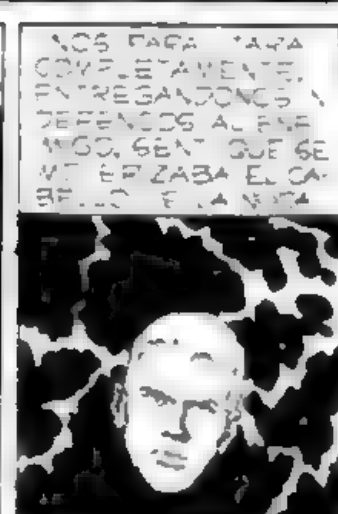 NOS PARA
COMPLETAMENTE,
ENTREGANDONOS IN
DEFENSOS AL ENE
MIGO. SENTI QUE SE
ME ERIZABA EL CA-
BELLO E LA NUCA